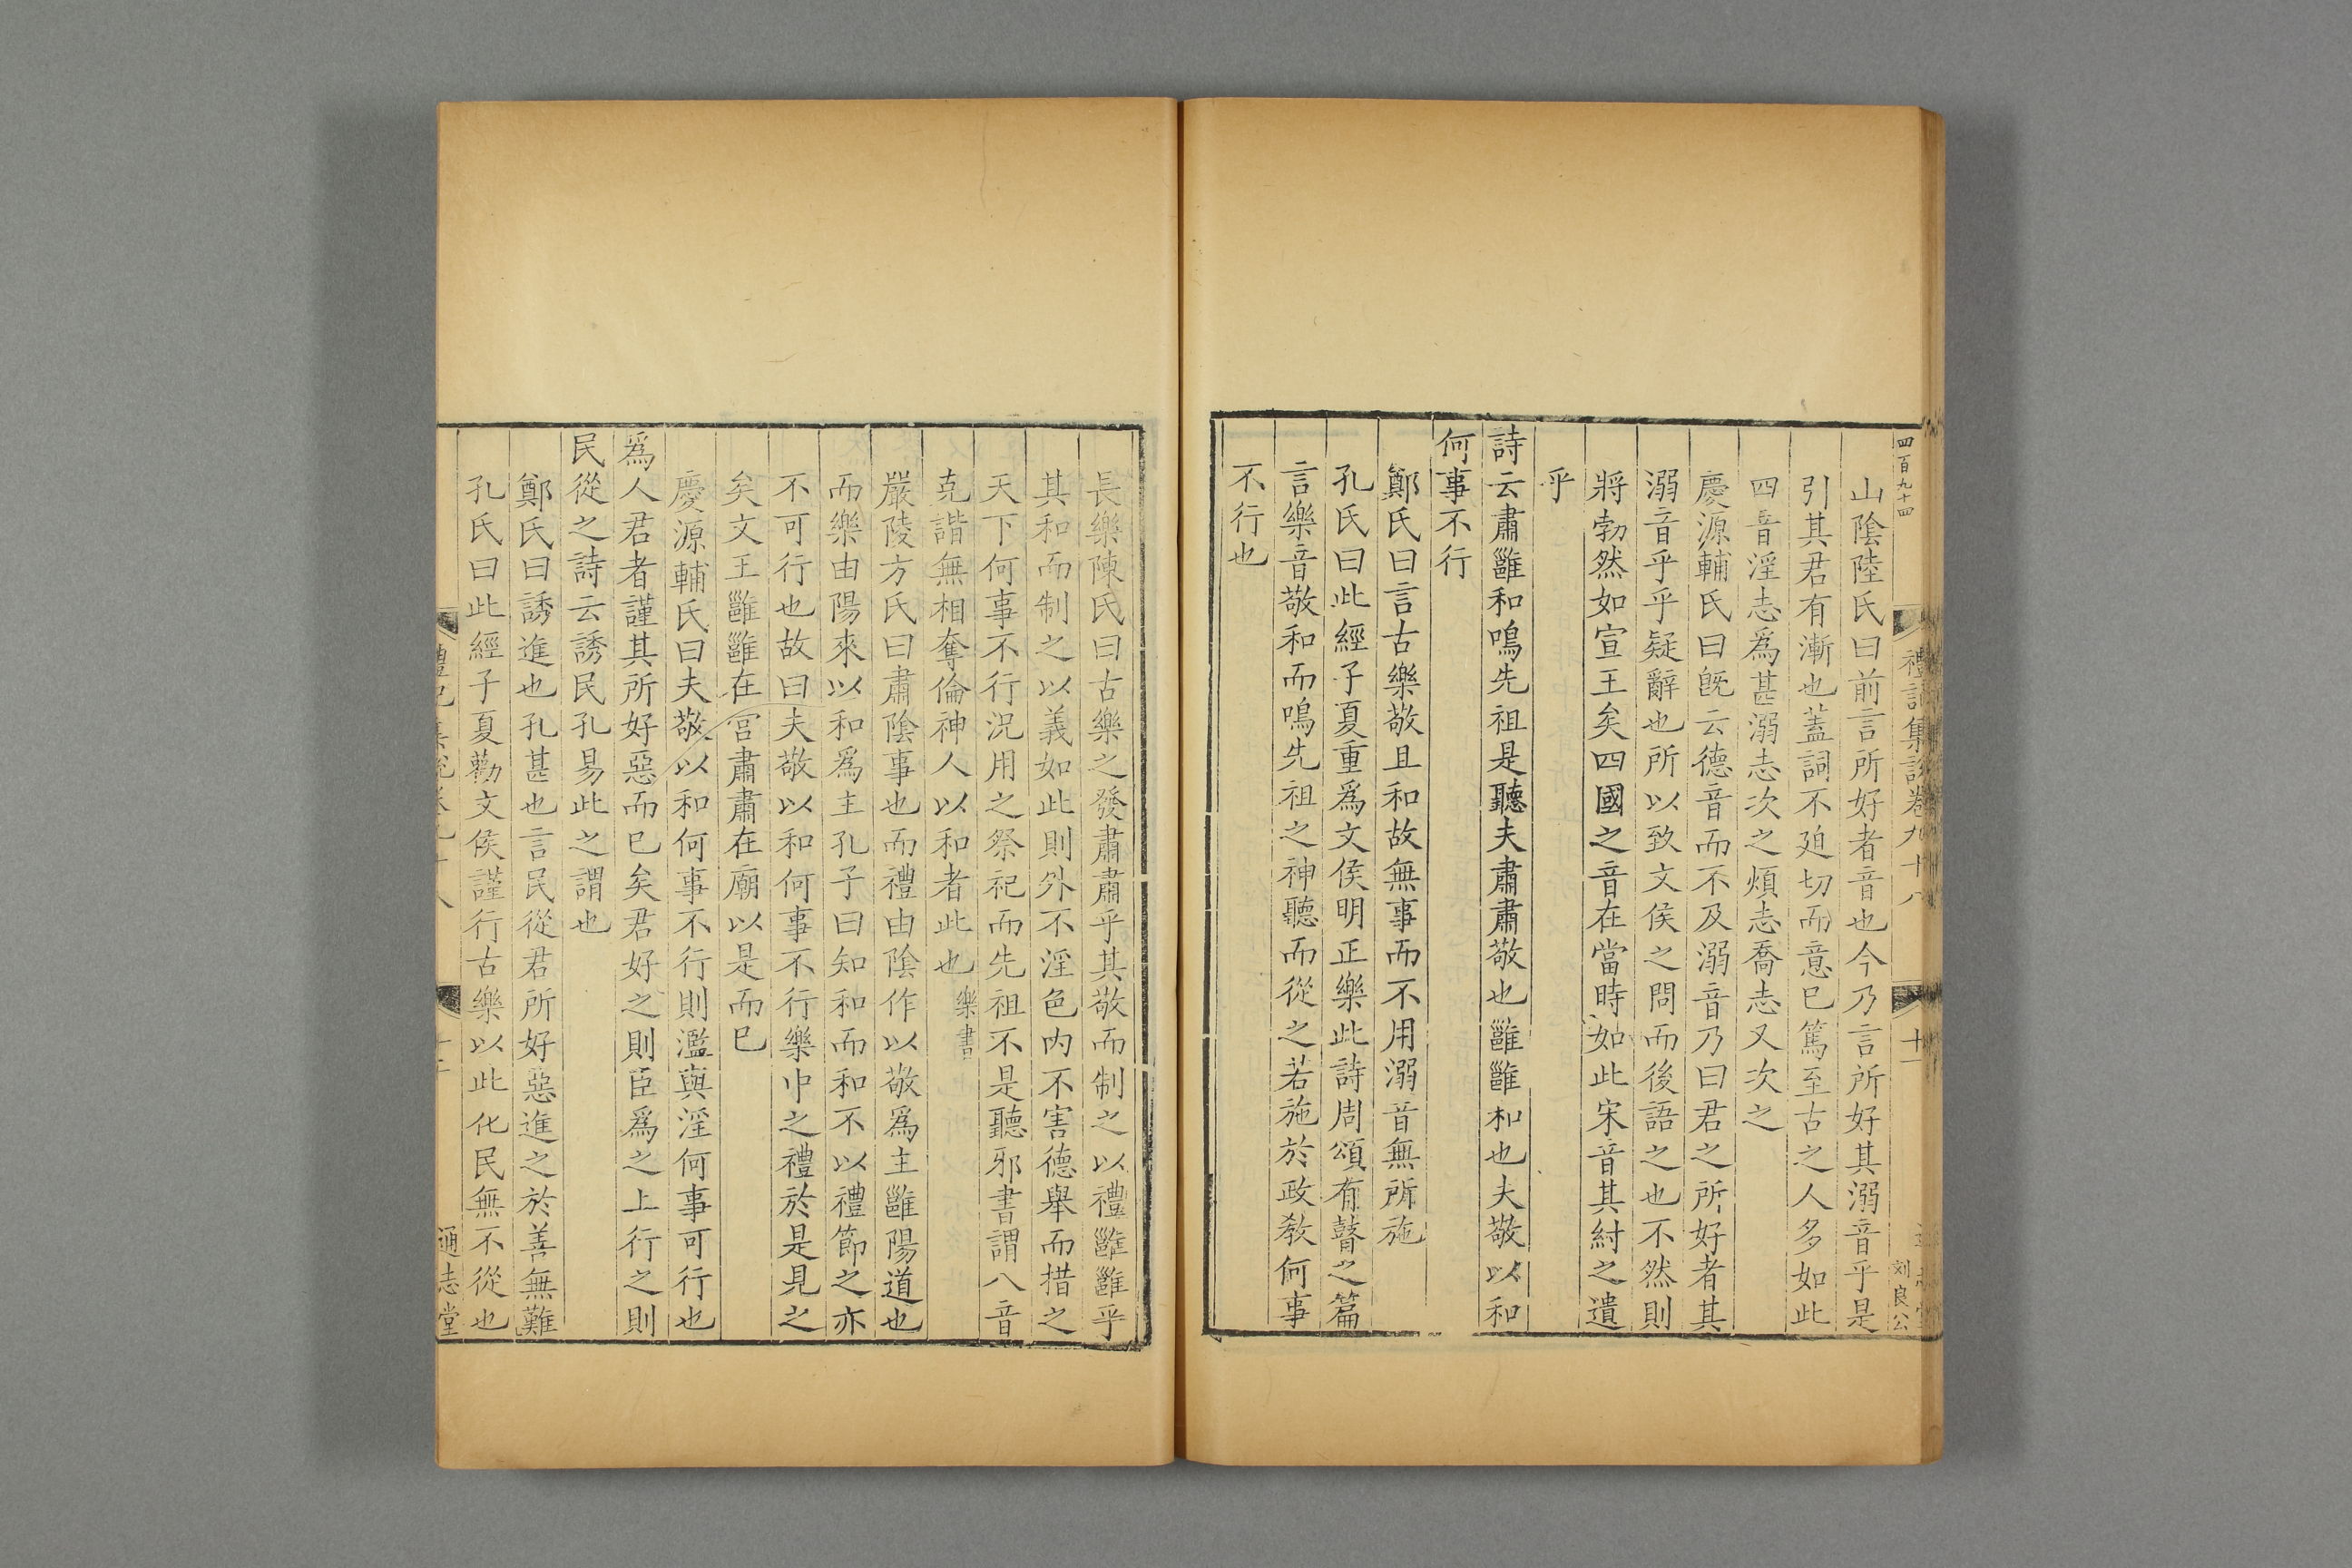 四百九十四
禮記集說卷九十八
十一
刘良公
山陰陸氏曰前言所好者音也今乃言所好其溺音乎是
引其君有漸也蓋詞不廹切而意已篤至古之人多如此
四音淫志爲甚溺志次之煩志喬志又次之
慶源輔氏曰旣云德音而不及溺音乃曰君之所好者其
溺音乎乎疑辭也所以致文侯之問而後語之也不然則
將勃然如宣王矣四國之音在當時如此宋音其紂之遺
乎
詩云肅雝和鳴先祖是聽夫肅肅敬也雝雝和也夫敬以和
何事不行
鄭氏曰言古樂敬且和故無事而不用溺音無所施
孔氏曰此經子夏重爲文侯明正樂此詩周頌有瞽之篇
言樂音敬和而鳴先祖之神聽而從之若施於政敎何事
不行也
長樂陳氏曰古樂之發肅肅乎其敬而制之以禮雝雝乎
其和而制之以義如此則外不淫色内不害德舉而措之
天下何事不行況用之祭祀而先祖不是聽邪書謂八音
克諧無相奪倫神人以和者此也樂書
嚴陵方氏曰肅陰事也而禮由陰作以敬爲主雝陽道也
而樂由陽來以和爲主孔子曰知和而和不以禮節之亦
不可行也故曰夫敬以和何事不行樂中之禮於是見之
矣文王雝雝在宫肅肅在廟以是而已
慶源輔氏曰夫敬以和何事不行則濫與淫何事可行也
爲人君者謹其所好惡而已矣君好之則臣爲之上行之則
民從之詩云誘民孔易此之謂也
鄭氏曰誘進也孔甚也言民從君所好惡進之於善無難
孔氏曰此經子夏勸文侯謹行古樂以此化民無不從也
禮記集說卷九十八
通志堂